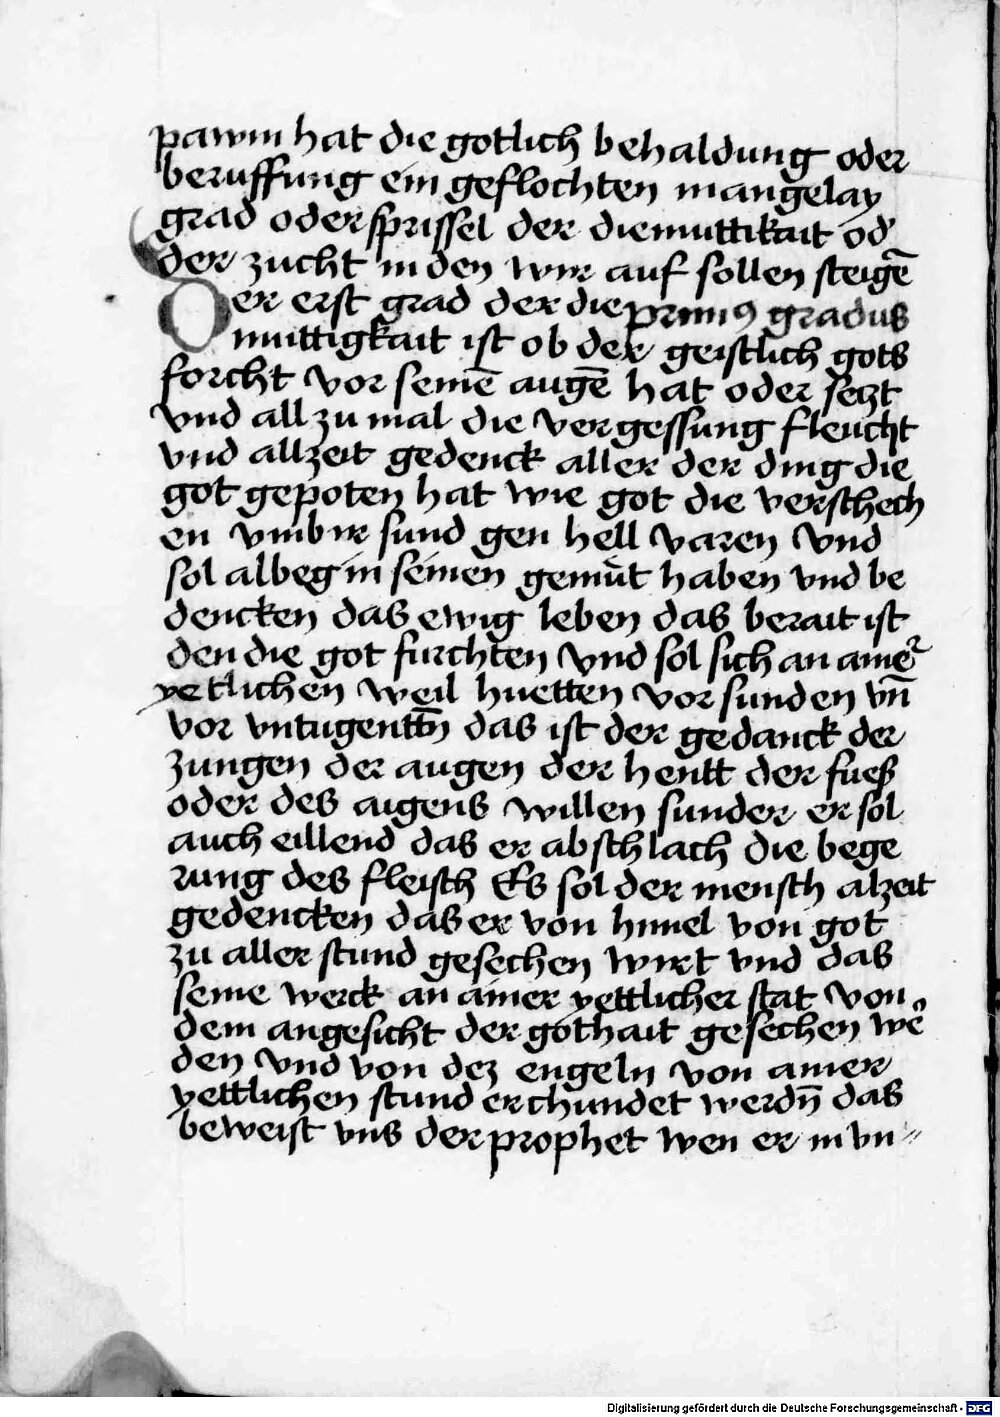 pawm hat die gotlich behaldung oder
beruffung ein geflochten mangelay
grad oder sprissel der diemuttikait od̕
der zucht in den wir auf sollen steigē
Der erst grad der die primꝰ gradus
muttigkait ist ob der geistlich gots
forcht vor seinē augē hat oder setzt
vnd all zu mal die vergessung fleucht
vnd allzeit gedenck aller der ding die
got gepoten hat wie got die verschech
en vmb ir sund gen hell varen vnd
sol albeg in seinen gemüt haben vnd be
dencken das ewig leben das berait ist
den die got furchten vnd sol sich an ainer̄
yetlichen weil huetten vor sunden vn̄
vor vntugentt̄n das ist der gedanck der
zungen der augen der hentt der fueß
oder des aigens willen sunder er sol
auch eillend das er abschlach die bege
rung des fleisch Es sol der mensch alzeit
gedencken das er von himel von got
zu aller stund gesechen wirt vnd das
seine werck an ainer yettlicher stat von
dem angesicht der gothait gesechen we̕
den vnd von dez engeln von ainer
yettlichen stund erchundet werdn̄ das
beweist vns der prophet wen er in vn⸗
Digitalisierung gefördert durch die Deutsche Forschungsgemeinschaft - DFG